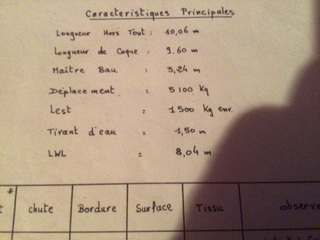 Caractéristiques Principales
Longueur Hors Tout : 10,06 m
Longueur de Coque : 9.60 m
Maître Bau : 3,24 m
Déplacement : 5100 Kg
Lest : 1500 Kg env.
Tirant d'eau : 1,50 m
LWL : 8,04 m
* chute Bordure Surface Tissu observa